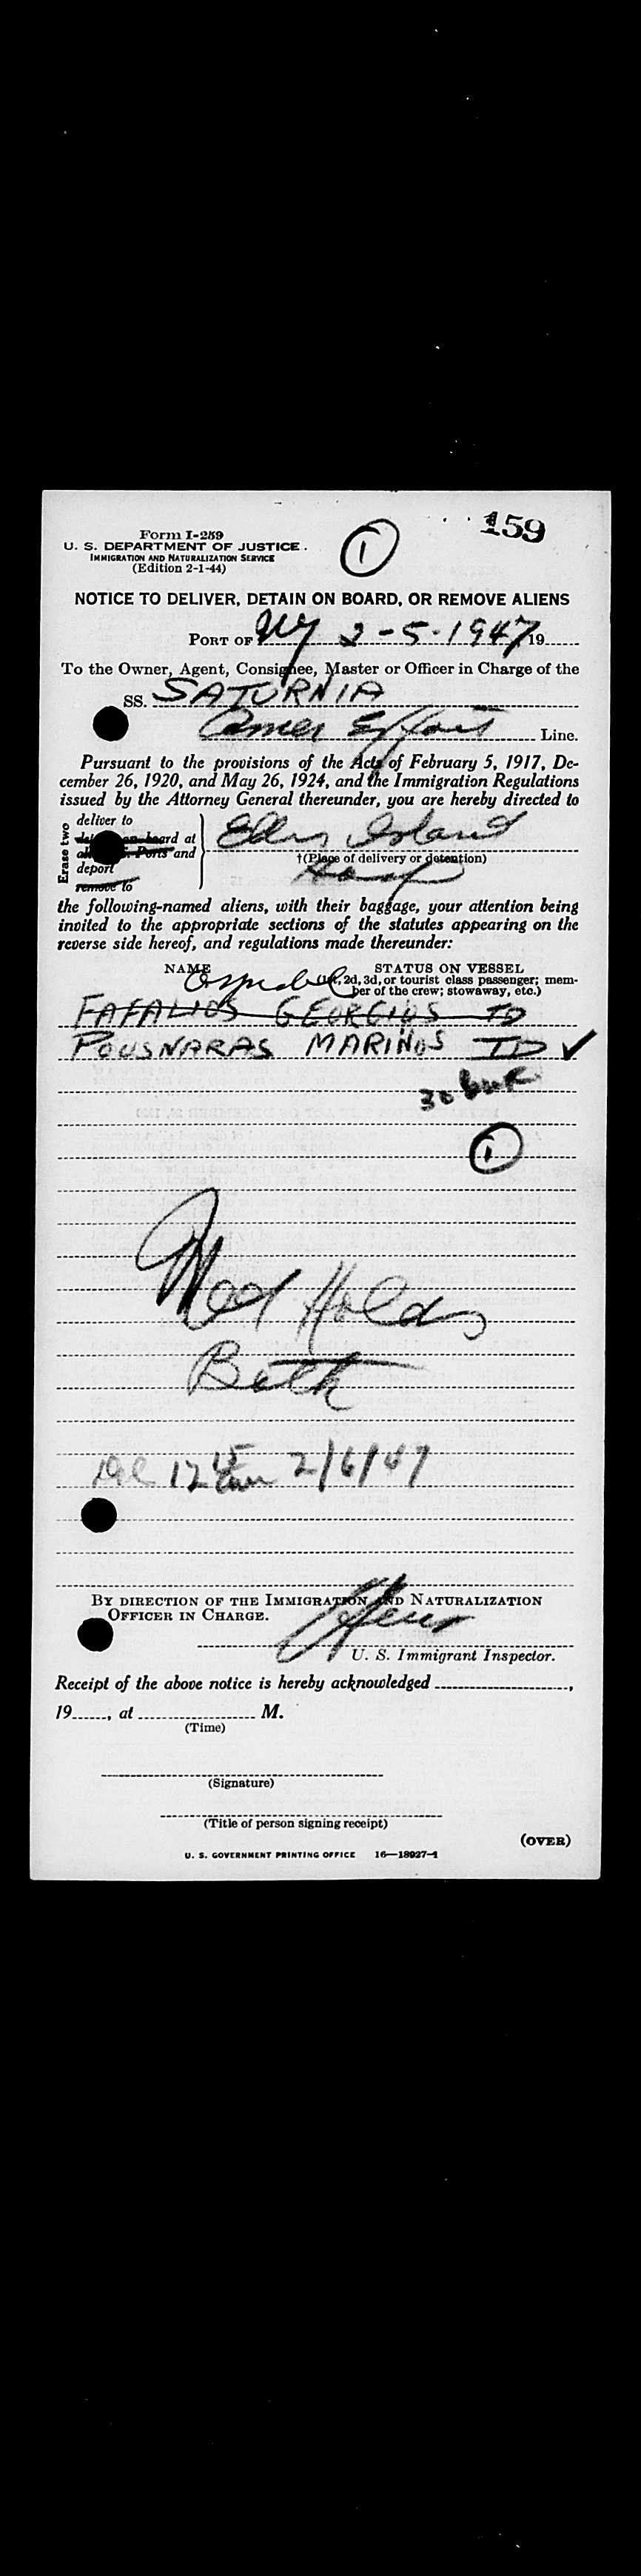 Form I-259
159
U. S. DEPARTMENT OF JUSTICE
1
IMMIGRATION AND NATURALIZATION SERVICE
(Edition 2-1-44)
NOTICE TO DELIVER, DETAIN ON BOARD, OR REMOVE ALIENS
PORT OF NY 2-5-1947, 19
To the Owner, Agent, Consignee, Master or Officer in Charge of the
SS. SATURNIA
Amer Export Line.
Pursuant to the provisions of the Acts of February 5, 1917, De-
cember 26, 1920, and May 26, 1924, and the Immigration Regulations
issued by the Attorney General thereunder, you are hereby directed to
Erase two
deliver to
on board at
Ports and
deport
remove to
Ellis Island
†(Place of delivery or detention)
Hosp
the following-named aliens, with their baggage, your attention being
invited to the appropriate sections of the statutes appearing on the
reverse side hereof, and regulations made thereunder:
NAME STATUS ON VESSEL
(1st, 2d, 3d, or tourist class passenger; mem-
ber of the crew; stowaway, etc.)
FAFALIOS GEORGIOS TD
POUSNARAS MARINOS TD ✓
30
1
Med Holds
Both
Del 12 45 2/6/47
BY DIRECTION OF THE IMMIGRATION AND NATURALIZATION
OFFICER IN CHARGE.
U. S. Immigrant Inspector.
Receipt of the above notice is hereby acknowledged ,
19 , at M.
(Time)
(Signature)
(Title of person signing receipt)
(OVER)
U. S. GOVERNMENT PRINTING OFFICE 16—18927-1